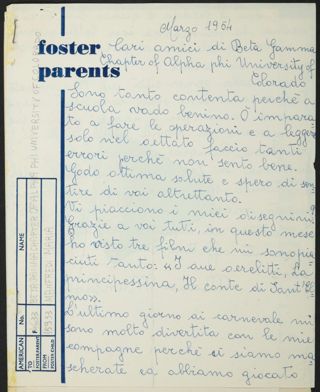 Marzo 1964
foster
parents
Cari amici di Beta Gamma
Chapter of Alpha phi University of
Colorado
Sono tanto contenta perchè a
scuola vado benino. O impara
to a fare le operazioni e a leggere
solo nel dettato faccio tanti
errori perchè non sento bene.
Godo ottima salute e spero di sen
tire di voi altrettanto.
Vi piacciono i miei disegnini?
Grazie a voi tutti, in questo mese
ho visto tre film che mi sono pia
ciuti tanto: "I due
principessina, Il conte di Sant'El
mo".
L'ultimo giorno di carnevale mi
sono molto divertita con le mie
compagne perchè ci siamo ma
scherate ed abbiamo giocato.
AMERICAN
FOSTER PARENT
No.
NAME
TO
F.
BETA GAMMA CHAPTER OF ALPHA PHI UNIVERSITY OF COLORADO
FROM
FOSTER CHILD
MARIA